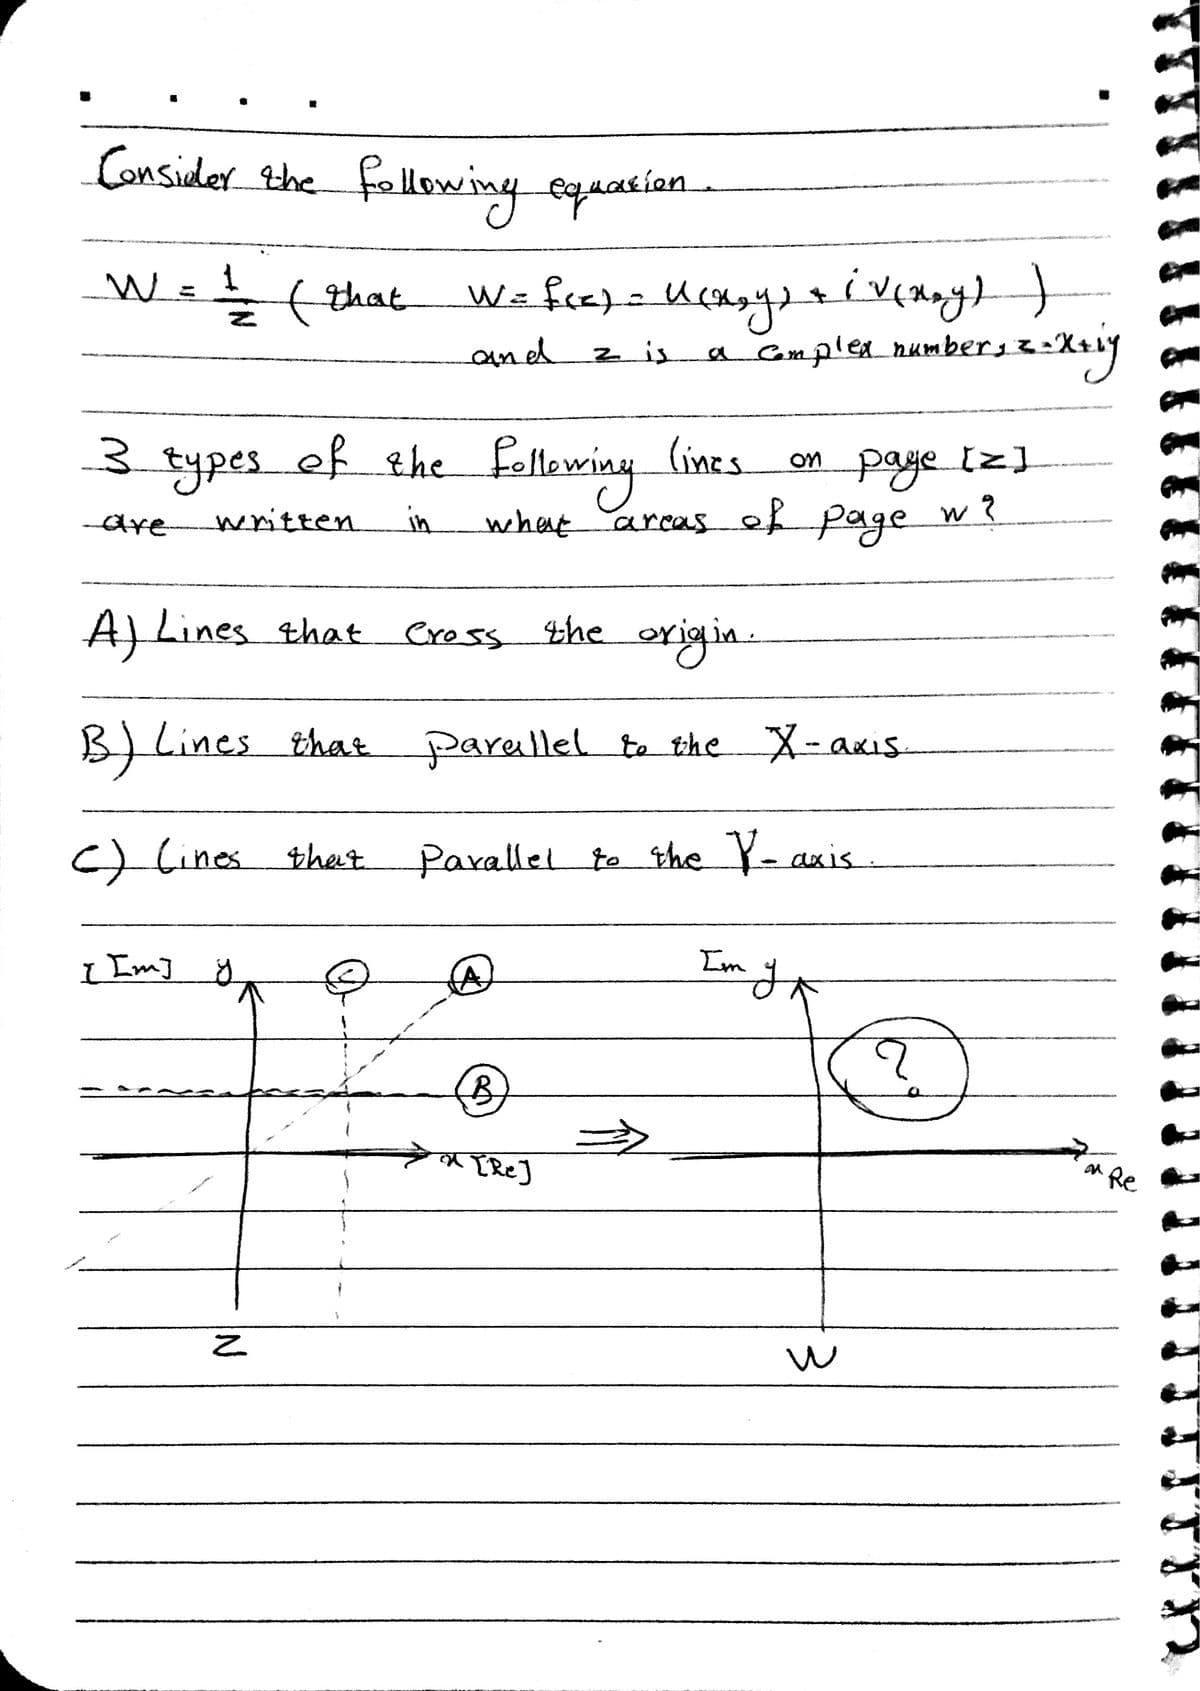 Consider the following equation.
W = 1/z ( that W = f(z) = u(x,y) + i v(x,y) )
and z is a complex number, z=x+iy
3 types of the following lines on page [z]
are written in what areas of page w?
A) Lines that cross the origin.
B) Lines that parallel to the X-axis.
C) Lines that Parallel to the Y-axis.
[Im] y C A Im y
?
B
⇒
x [Re] x Re
Z W